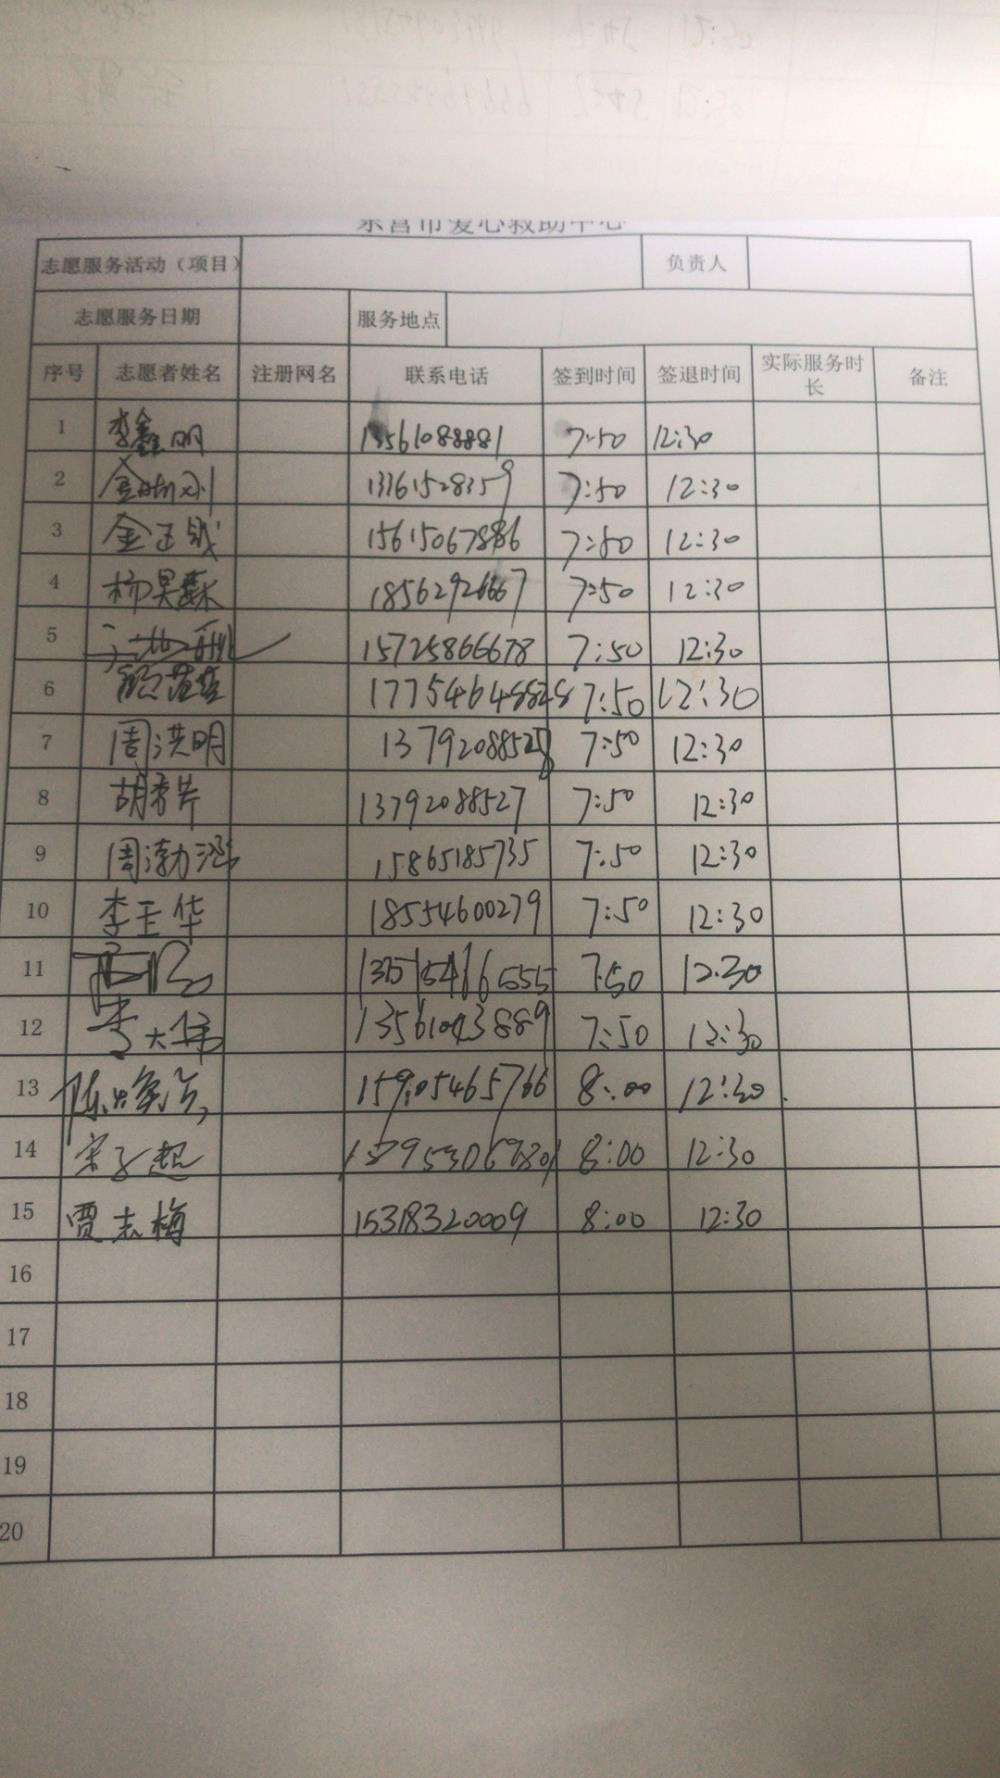 东营市爱心救助中心
志愿服务活动（项目） 负责人
志愿服务日期 服务地点
序号 志愿者姓名 注册网名 联系电话 签到时间 签退时间 实际服务时长 备注
1 李鑫明 13561088881 7:50 12:30
2 13361528359 7:50 12:30
3 金正 15615067886 7:50 12:30
4 杨昊霖 18562926667 7:50 12:30
5 15725866678 7:50 12:30
6 17754648828 7:50 12:30
7 周洪明 7:50 12:30
8 胡秀芹 13792088527 7:50 12:30
9 周渤涵 15865185735 7:50 12:30
10 李玉华 18554600279 7:50 12:30
11 7:50 12:30
12 李大伟 13561043889 7:50 12:30
13 15905465766 8:00 12:30
14 宋子超 8:00 12:30
15 贾志梅 15318320009 8:00 12:30
16
17
18
19
20